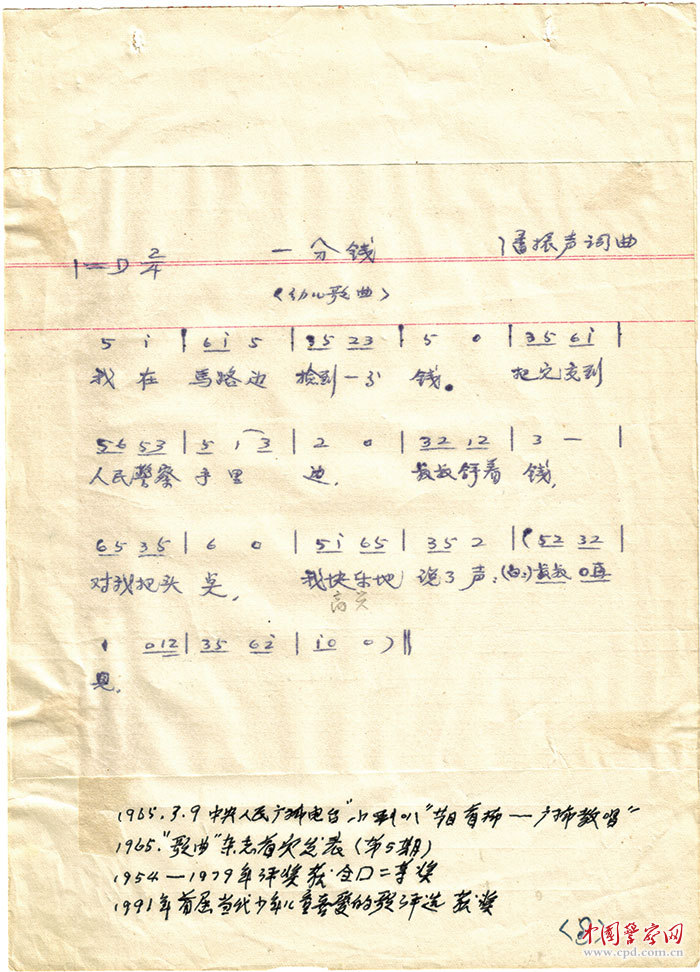 一分钱
潘振声词曲
1=D 2/4
(幼儿歌曲)
5 i | 6i 5 | 35 23 | 5 0 | 35 6i |
我在 馬路边 捡到一分 钱。 把它交到
56 53 | 5 1 3 | 2 0 | 32 12 | 3 — |
人民警察 手里 边, 叔叔 拿着 钱,
65 35 | 6 0 | 5i 65 | 35 2 | (52 32 |
对我把头 点, 我快乐地 说了声:(白:)叔叔 0再
高兴
1 012 | 35 6i | i0 0) ||
見。
1965.3.9 中央人民广播电台"小喇叭"节目首播一广播教唱"
1965."歌曲"杂志首次发表(第5期)
1954—1979年评奖获全国二等奖
1991年首届当代少年儿童喜爱的歌评选 获奖
<8>
中国警察网
www.cpd.com.cn